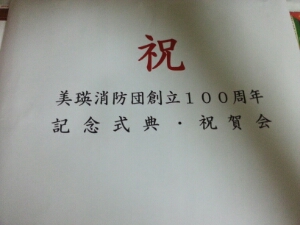 祝
美瑛消防団創立１００周年
記念式典・祝賀会